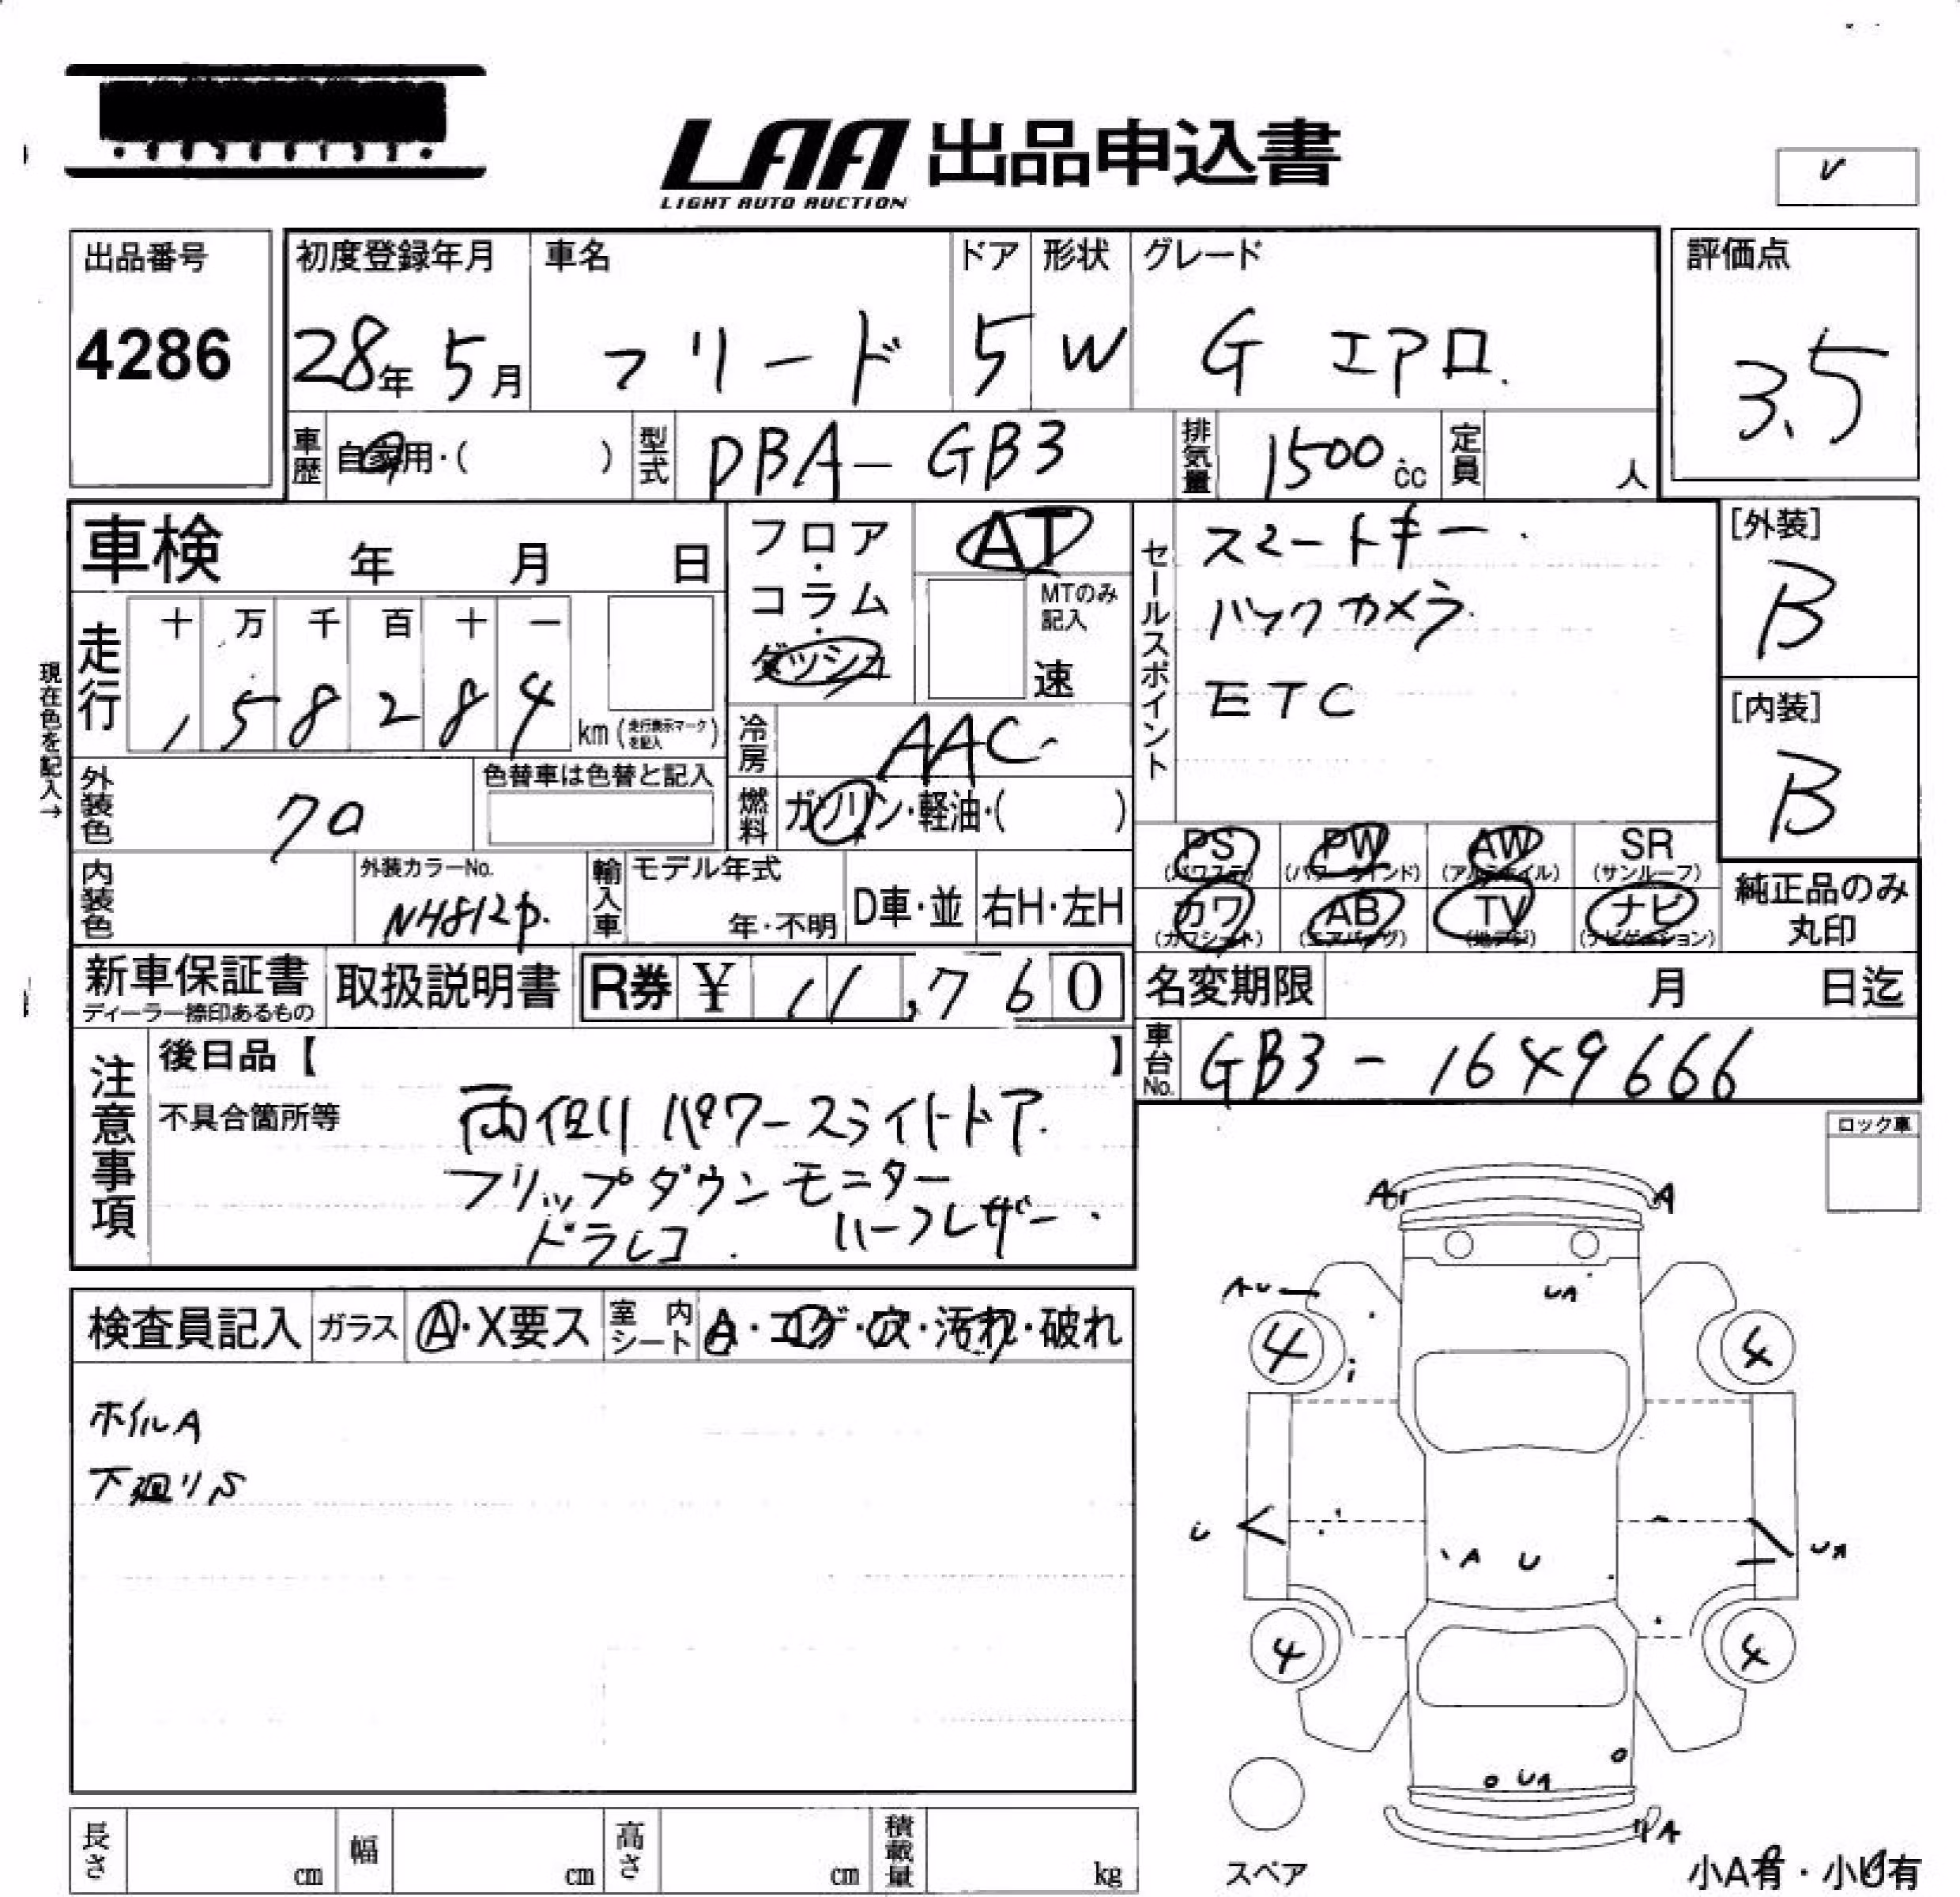 LAA 出品申込書
LIGHT AUTO AUCTION
出品番号
4286
初度登録年月 車名 ドア 形状 グレード
28年 5月 フリード 5 W G エアロ.
評価点
3.5
車歴 自家用・( ) 型式 DBA-GB3 排気量 1500 cc 定員 人
車検 年 月 日
フロア・コラム・ダッシュ
AT
MTのみ記入
速
セールスポイント
スマートキー.
バックカメラ.
ETC
[外装]
B
[内装]
B
現在色を記入→
走行 十 万 千 百 十 一
1 5 8 2 8 4 km (走行表示マークを記入)
冷房 AAC
外装色 クロ 色替車は色替と記入
燃料 ガソリン・軽油・( )
PS PW AW SR
(パワステ) (パワーウインド) (アルミホイル) (サンルーフ)
カワ AB TV ナビ
(カワシート) (エアバッグ) (地デジ) (ナビゲーション)
純正品のみ丸印
内装色 外装カラーNo. NH812p. 輸入車 モデル年式 年・不明 D車・並 右H・左H
新車保証書
ディーラー捺印あるもの
取扱説明書 R券 ¥ 11,760
名変期限 月 日迄
車台No. GB3-1649666
注意事項
後日品【 】
不具合箇所等
両側パワースライドドア.
フリップダウンモニター
ドラレコ. ハーフレザー.
ロック車
検査員記入 ガラス A・X要ス 室内シート A・コゲ・穴・汚れ・破れ
ホイルA
下廻りS
A A
AU UA
4 4
U A U UA
4 4
UA
A
スペア
小A有・小U有
長さ cm 幅 cm 高さ cm 積載量 kg